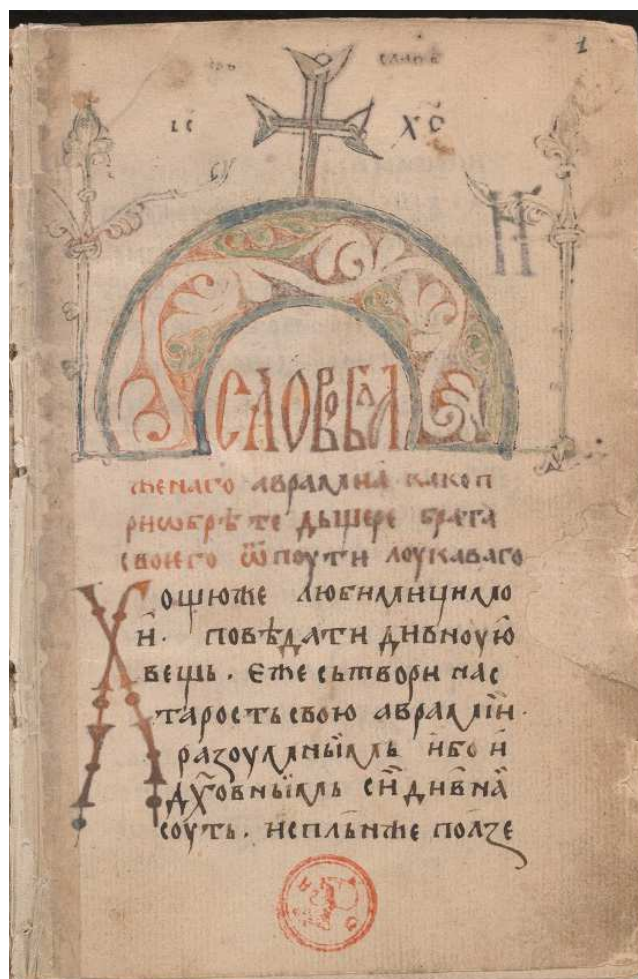 1
ІС ХС
И
СЛОВО БЛА
женаго авраамиа како п
риѡбрѣте дьщере брата
своиего ѿ поути лоукаваго
Хощюже любимицимло
и. повѣдати дивноую
вещь. Еже сьтвори нас
тарость свою авраамїи.
разоумныимь ибо и
дх҃овныимь сїи дивна
соуть. испльнже ползе